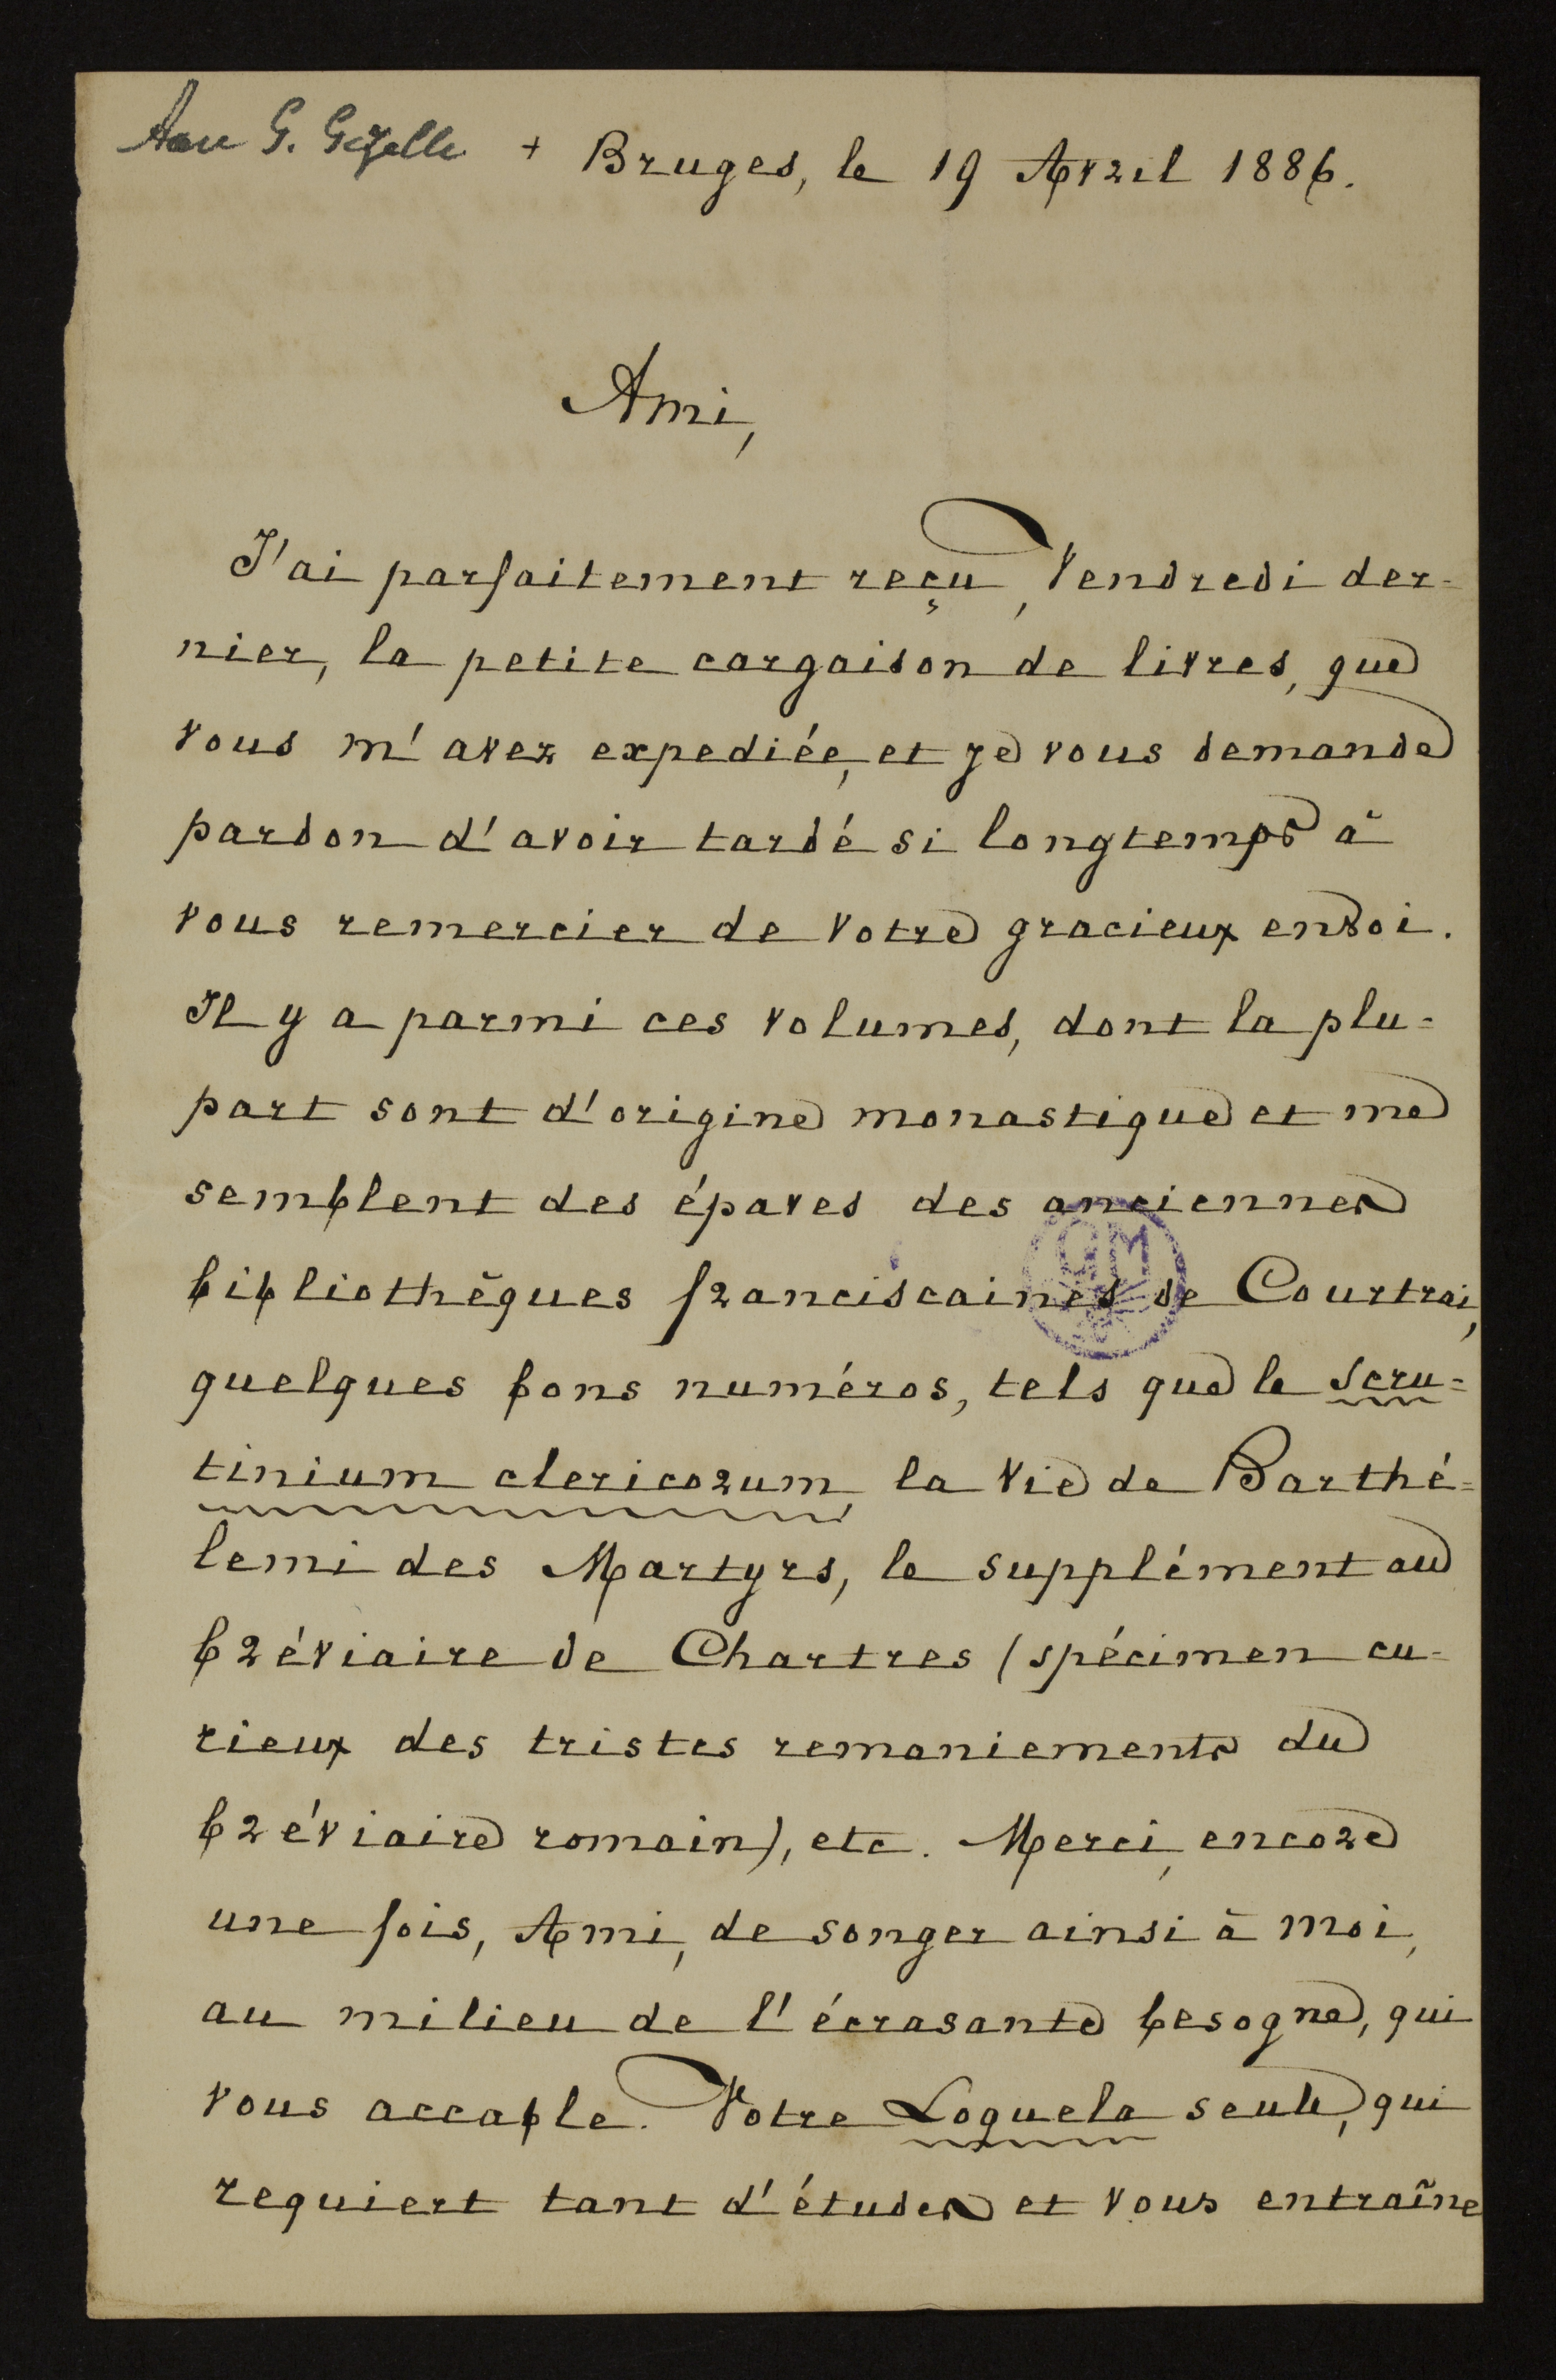 Aan G. Gezelle + Bruges, le 19 Avril 1886.
Ami,
J'ai parfaitement reçu, Vendredi der-
nier, la petite cargaison de livres, que
vous m'avez expediée, et je vous demande
pardon d'avoir tardé si longtemps à
vous remercier de votre gracieux envoi.
Il y a parmi ces volumes, dont la plu-
part sont d'origine monastique et me
semblent des épaves des anciennes
bibliothèques franciscaines de Courtrai,
quelques bons numéros, tels que le Scru-
tinium clericorum, la Vie de Barthé-
lemi des Martyrs, le supplément au
bréviaire de Chartres (spécimen cu-
rieux des tristes remaniements du
bréviaire romain), etc. Merci, encore
une fois, Ami, de songer ainsi à moi,
au milieu de l'écrasante besogne, qui
vous accable. Votre Loquela seule, qui
requiert tant d'études et vous entraîne
GM